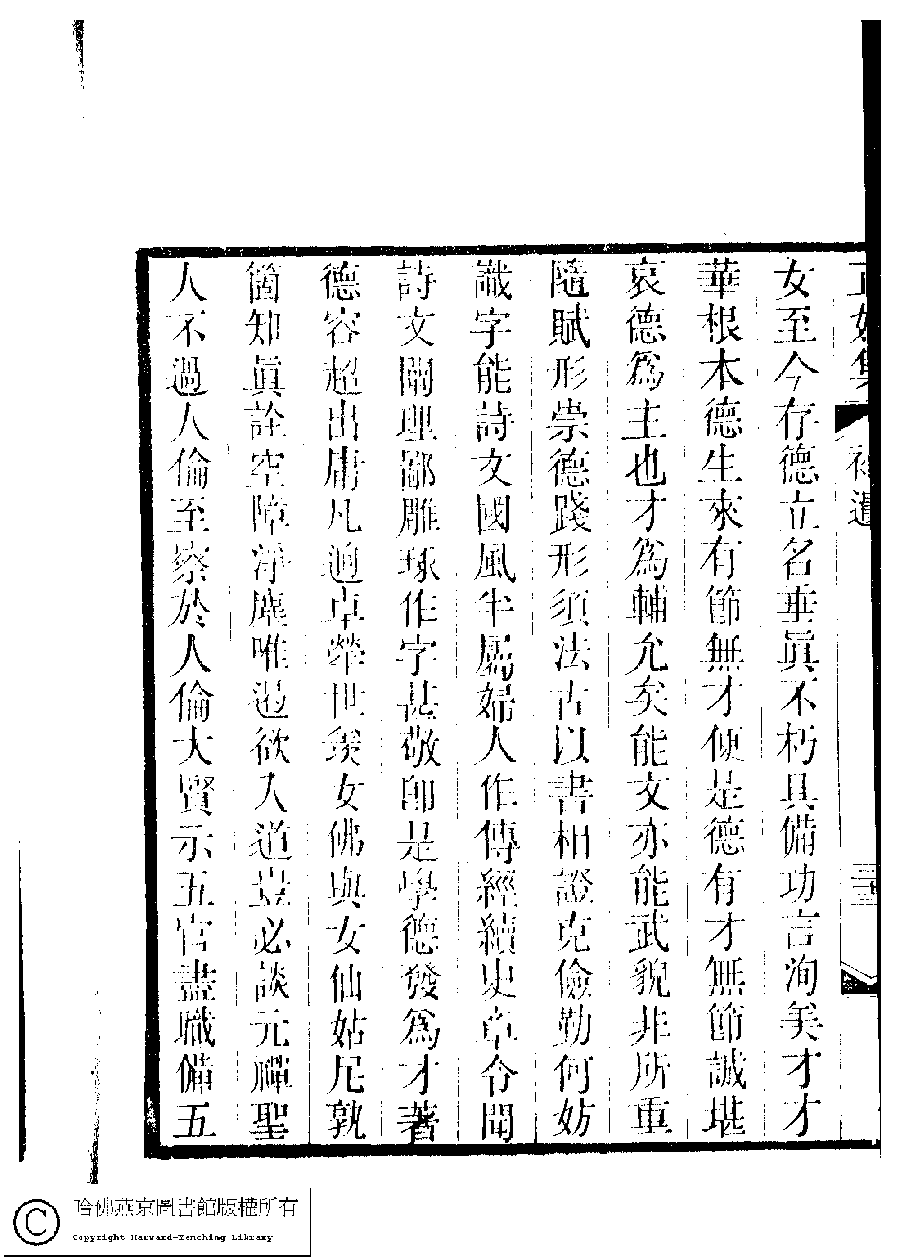 正始集 補遺 二十三
女至今存德立名垂眞不朽具備功言洵美才才
華根本德生來有節無才便是德有才無節誠堪
哀德爲主也才爲輔允矣能文亦能武貌非所重
隨賦形崇德踐形須法古以書相證克儉勤何妨
識字能詩文國風半屬婦人作傳經續史卓令聞
詩文闡理鄙雕琢作字甚敬即是學德發爲才著
德容超出庸凡適卓犖世羨女佛與女仙姑凥孰
箇知眞詮空障淨塵唯遏欲入道豈必談元禪聖
人不過人倫至察於人倫大賢示五官盡職備五
哈佛燕京圖書館版權所有
Copyright Harvard-Yenching Library